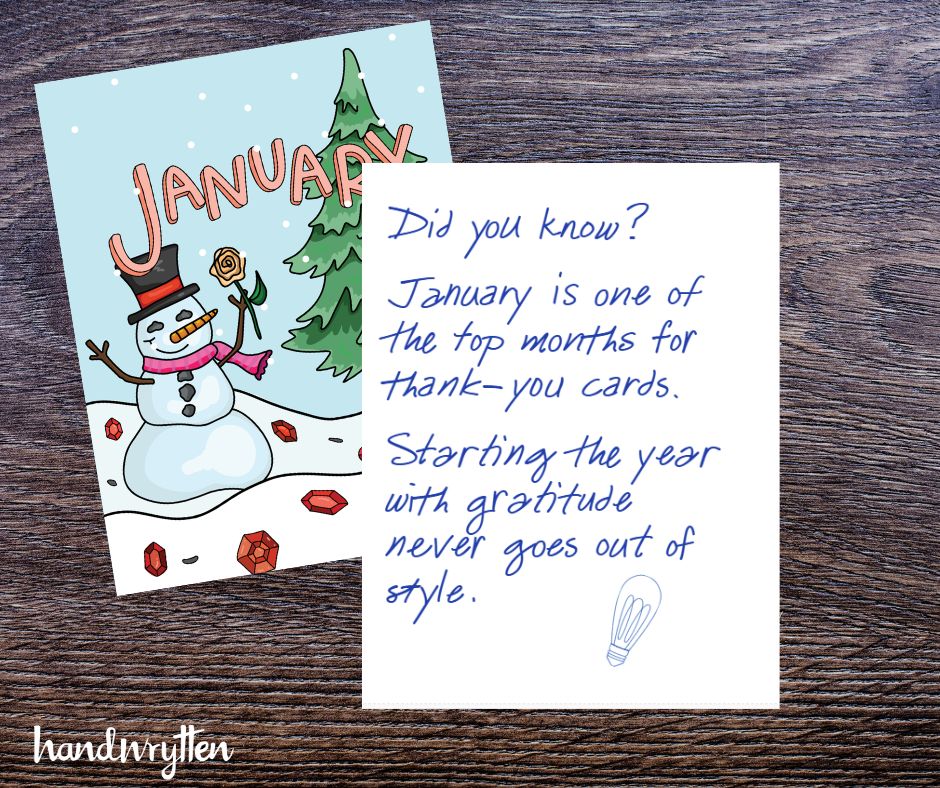 JANUARY
Did you know?
January is one of
the top months for
thank-you cards.
Starting the year
with gratitude
never goes out of
style.
handwrytten